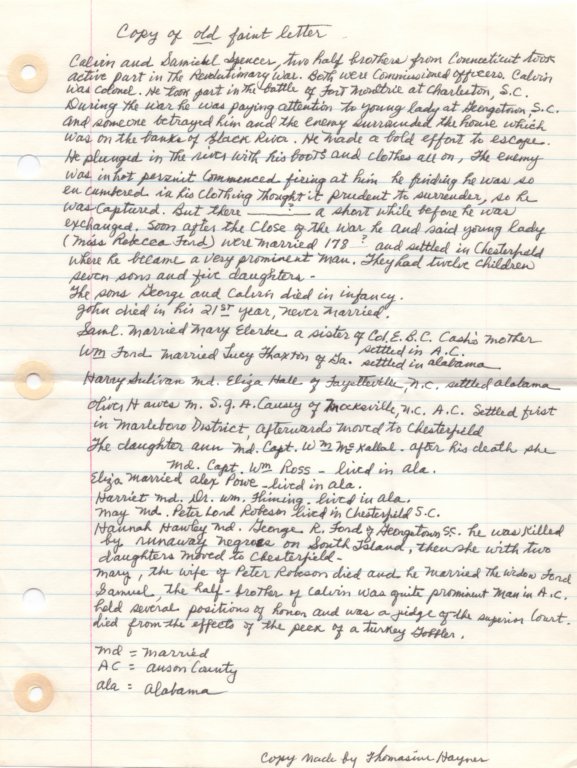 Copy of old faint letter
Calvin and Samuel Spencer, two half brothers from Connecticut took
active part in the Revolutionary War. Both were Commissioned officers. Calvin
was Colonel. He took part in the battle of Fort Moultrie at Charleston, S.C.
During the war he was paying attention to young lady at Georgetown, S.C.
and someone betrayed him and the enemy surrounded the house which
was on the banks of Black River. He made a bold effort to escape.
He plunged in the river with his boots and clothes all on, The enemy
was in hot persuit Commenced fireing at him he finding he was so
en cumbered in his clothing thought it prudent to surrender, so he
was captured. But there ——?—— a short while before he was
exchanged. Soon after the Close of the war he and said young lady
(Miss Rebecca Ford) were married 178? and settled in Chesterfield
where he became a very prominent man. They had twelve children
seven sons and five daughters -
The sons George and Calvin died in infancy.
John died in his 21st year, never married.
Saml. Married Mary Elerbe a sister of Col. E.B.C. Cash's mother
settled in A.C.
Wm Ford married Lucy Thaxton of Ga. settled in alabama
Harry Sulivan md. Eliza Hall of Fayetteville, N.C. settled alabama
Oliver Hawes m. S.G.A. Causey of Mocksville, N.C. A.C. Settled first
in Marlboro District, afterwards moved to Chesterfield
The daughter ann Md. Capt. Wm McKallal. after his death she
Md. Capt. Wm Ross - lived in ala.
Eliza married Alex Powe - lived in ala.
Harriet md. Dr. Wm. Fliming. lived in ala.
May md. Peter Lord Robeson lived in Chesterfield S.C.
Hannah Hawley md. George R. Ford of Georgetown S.C. he was killed
by runaway negroes on South Island, then she with two
daughters moved to Chesterfield -
Mary, the wife of Peter Robson died and he married the widow Ford
Samuel, the half-brother of Calvin was quite prominent man in A.C.
held several positions of honor and was a judge of the superior Court.
died from the effects of the peck of a turkey Gobbler.
md = married
AC = anson County
ala = alabama
Copy made by Thomasine Hayner